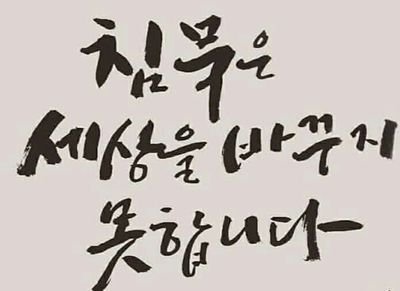 침묵은
세상을 바꾸지
못합니다